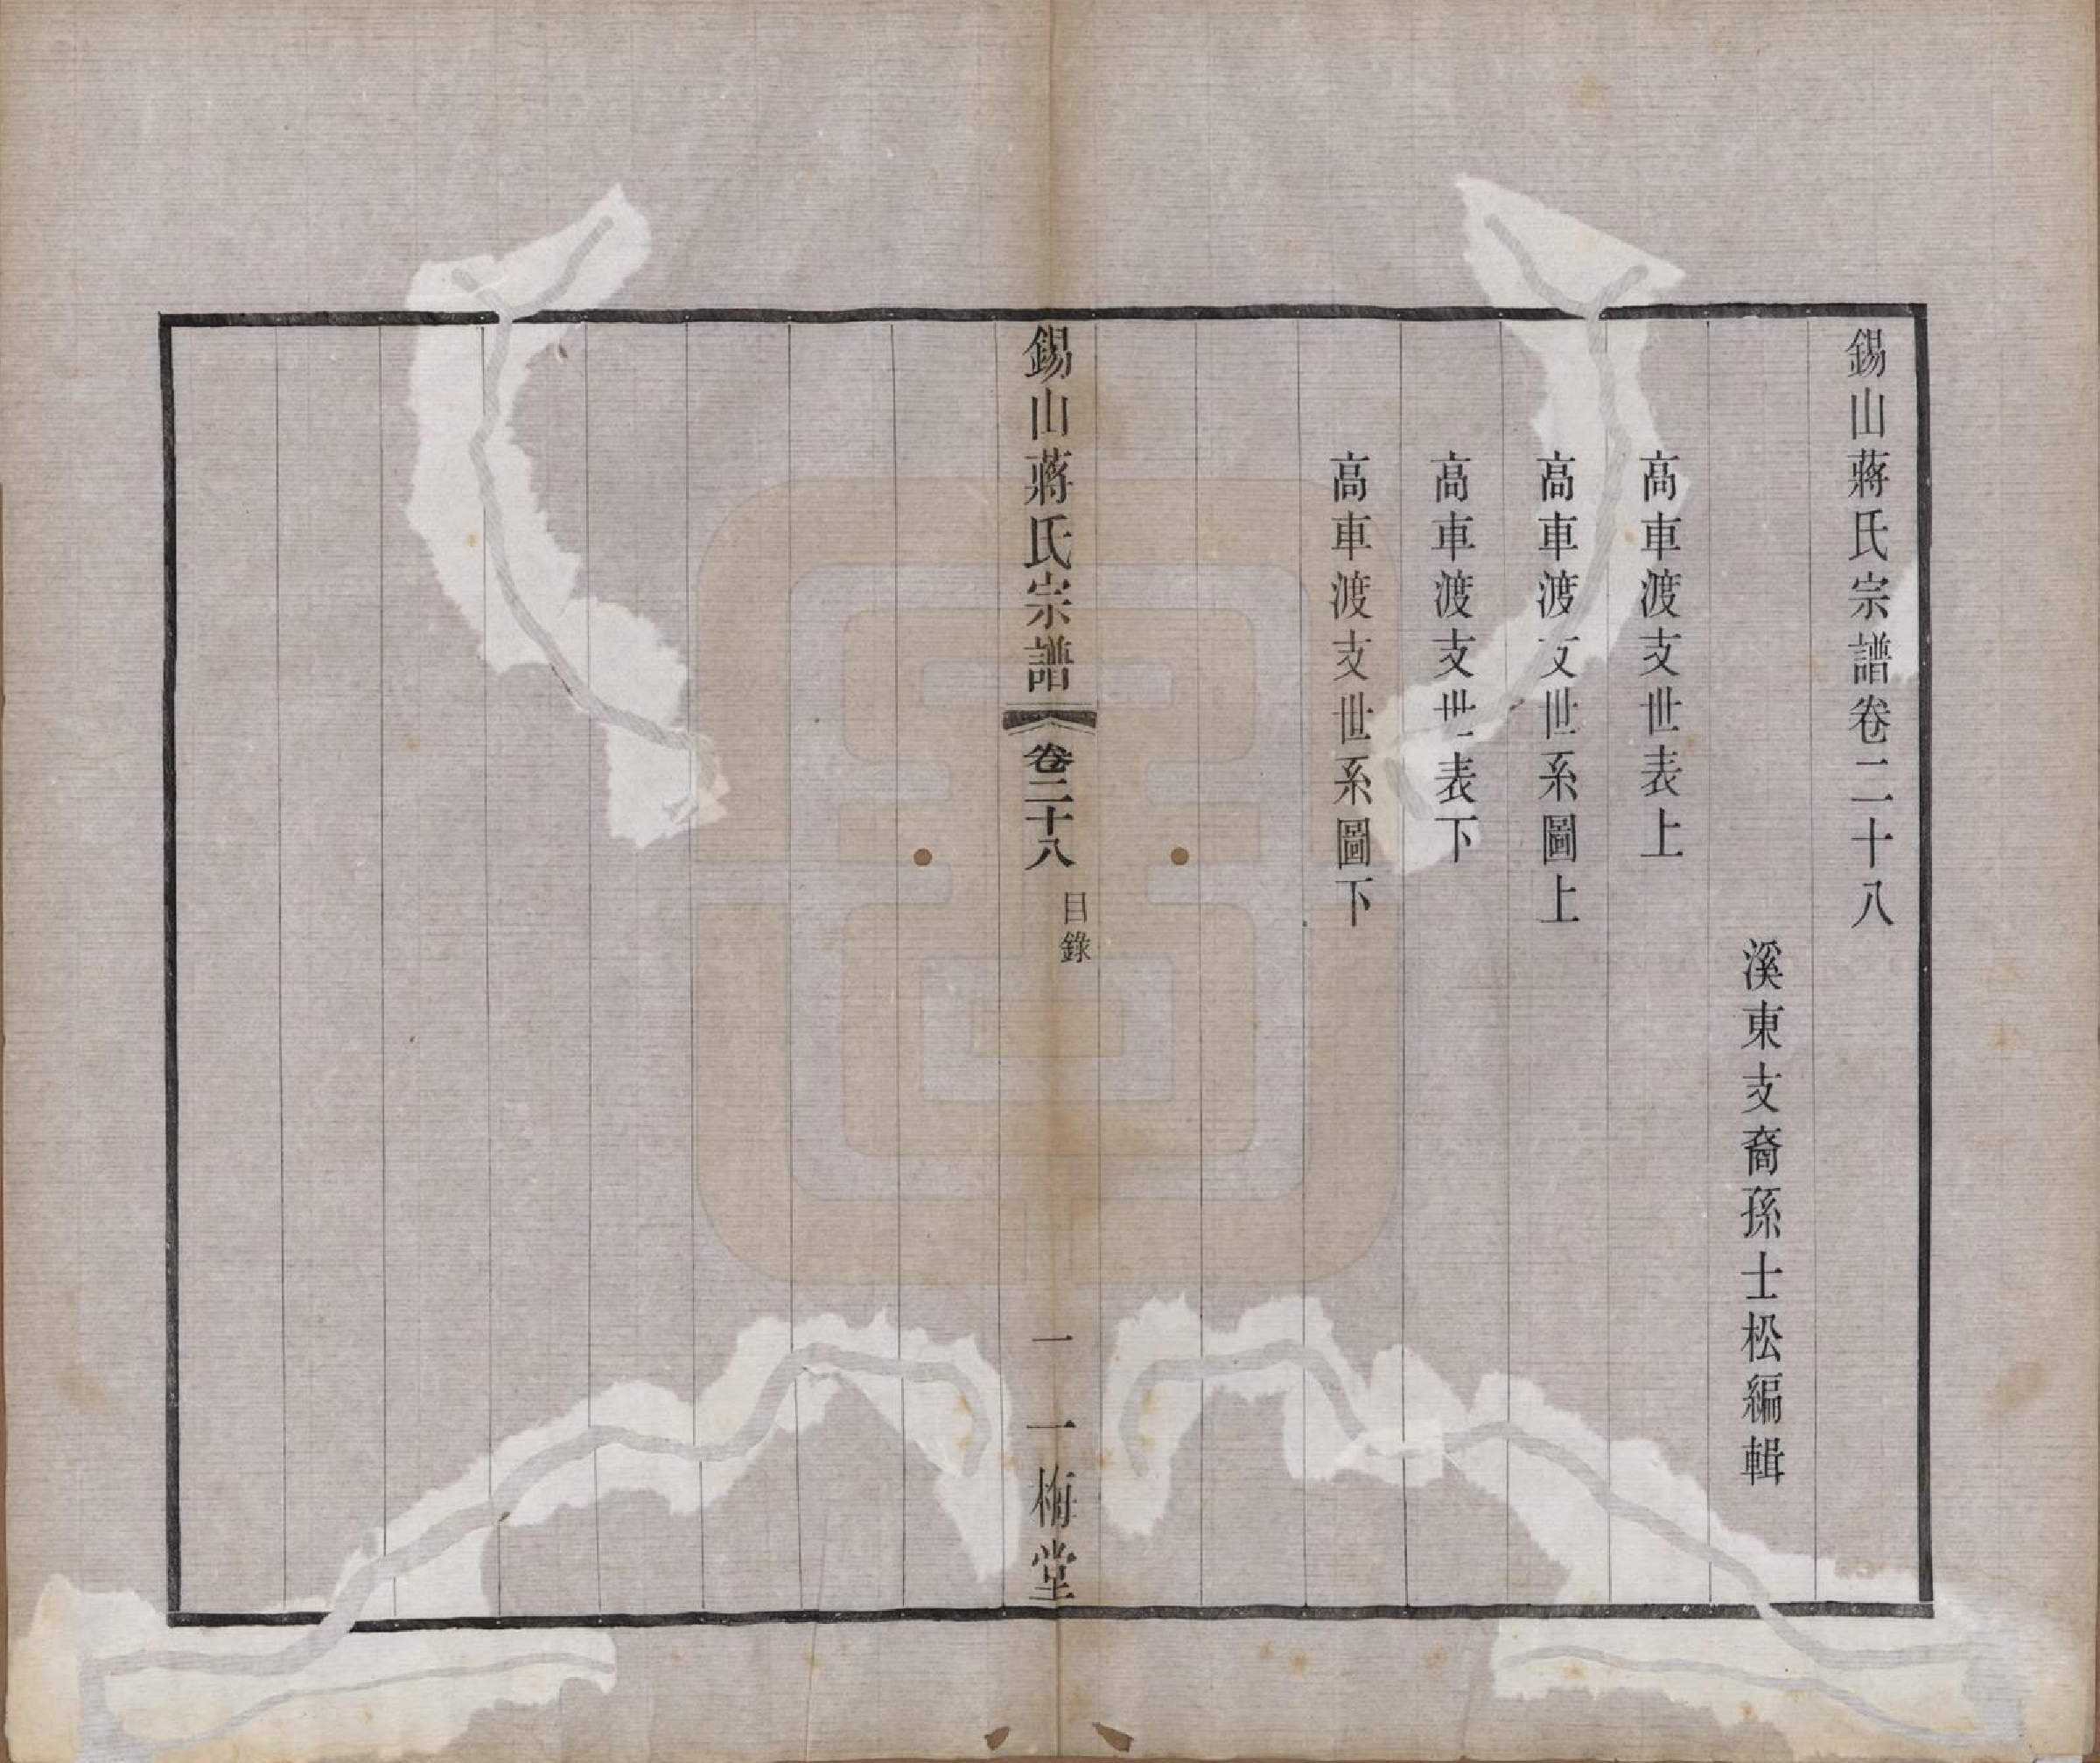 錫山蔣氏宗譜卷二十八
溪東支裔孫士松編輯
高車渡支世表上
高車渡支世系圖上
高車渡支世表下
高車渡支世系圖下
錫山蔣氏宗譜
卷二十八
目錄
一
一梅堂